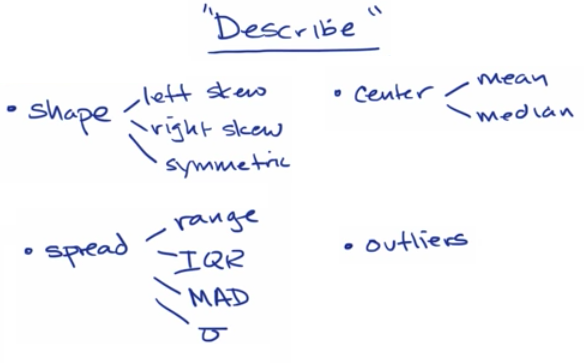 "Describe"
• shape
left skew
right skew
symmetric
• center
mean
median
• spread
range
IQR
MAD
σ
• outliers